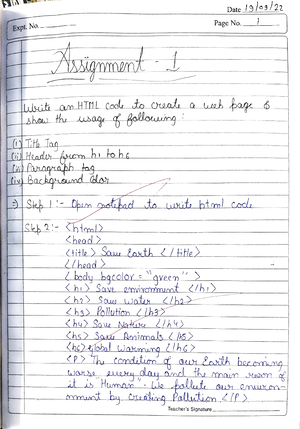 Date 19/09/22
Expt. No.
Page No. 1
Assignment - 1
Write an HTML code to create a web page to
show the usage of following :
(i) Title Tag
(ii) Header from h1 to h6
(iii) Paragraph tag
(iv) Background Color
=> Step 1 :- Open notepad to write html code
Step 2 :- <html>
<head>
<title> Save Earth </title>
</head>
<body bgcolor = "green" >
<h1> Save environment </h1>
<h2> Save Water </h2>
<h3> Pollution </h3>
<h4> Save Nature </h4>
<h5> Save Animals </h5>
<h6> Global Warming </h6>
<P> The condition of our Earth becoming
worse every day and the main reason of
it is "Human". We pollute our environ-
nment by creating Pollution </P>
Teacher's Signature